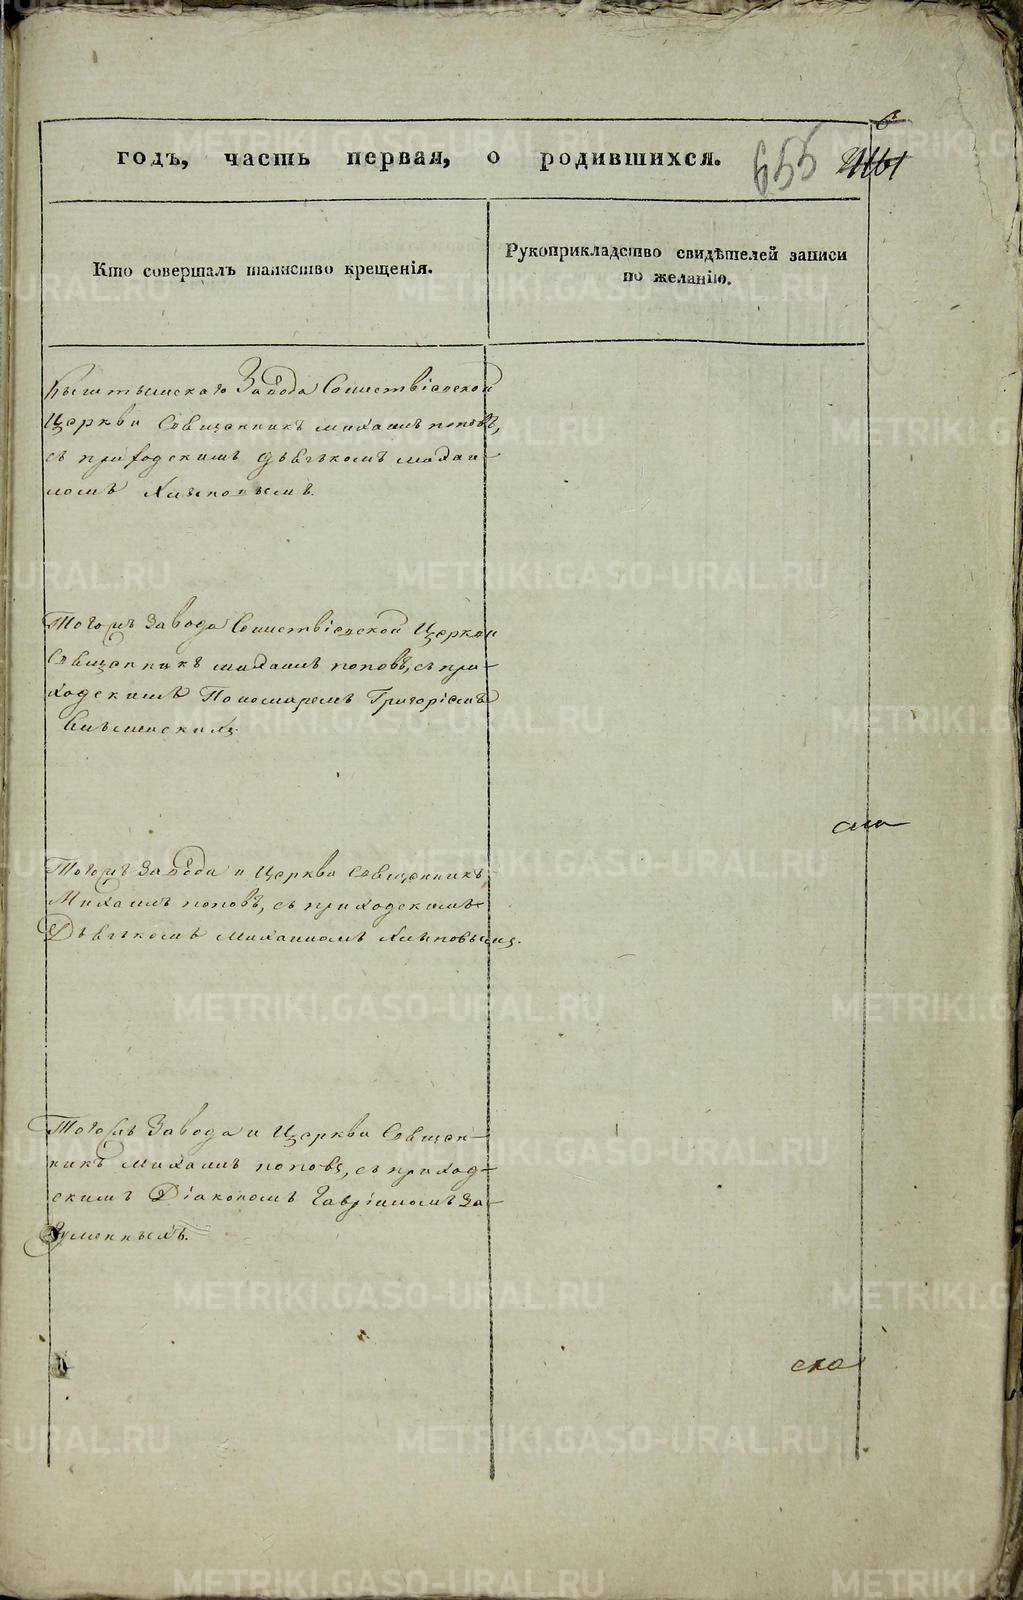 годъ, часть первая, о родившихся.
655
Кто совершалъ таинство крещенія.
Рукоприкладство свидѣтелей записи
по желанію.
Кыштымскаго Завода Сошествіевской
Церкви Священникъ михаилъ поповъ,
съ приходскимъ дьячькомъ михаи-
ломъ
Тогожъ Завода Сошествіевской Церкви
Священникъ михаилъ поповъ, съ при-
ходскимъ Пономаремъ Григоріемъ
Тогожъ Завода и Церкви Священникъ
Михаилъ поповъ, съ приходскимъ
Дьячькомъ Михаиломъ
Тогожъ Завода и Церкви Священ-
никъ михаилъ поповъ, съ приход-
скимъ Діакономъ Гавріиломъ За-
METRIKI.GASO-URAL.RU